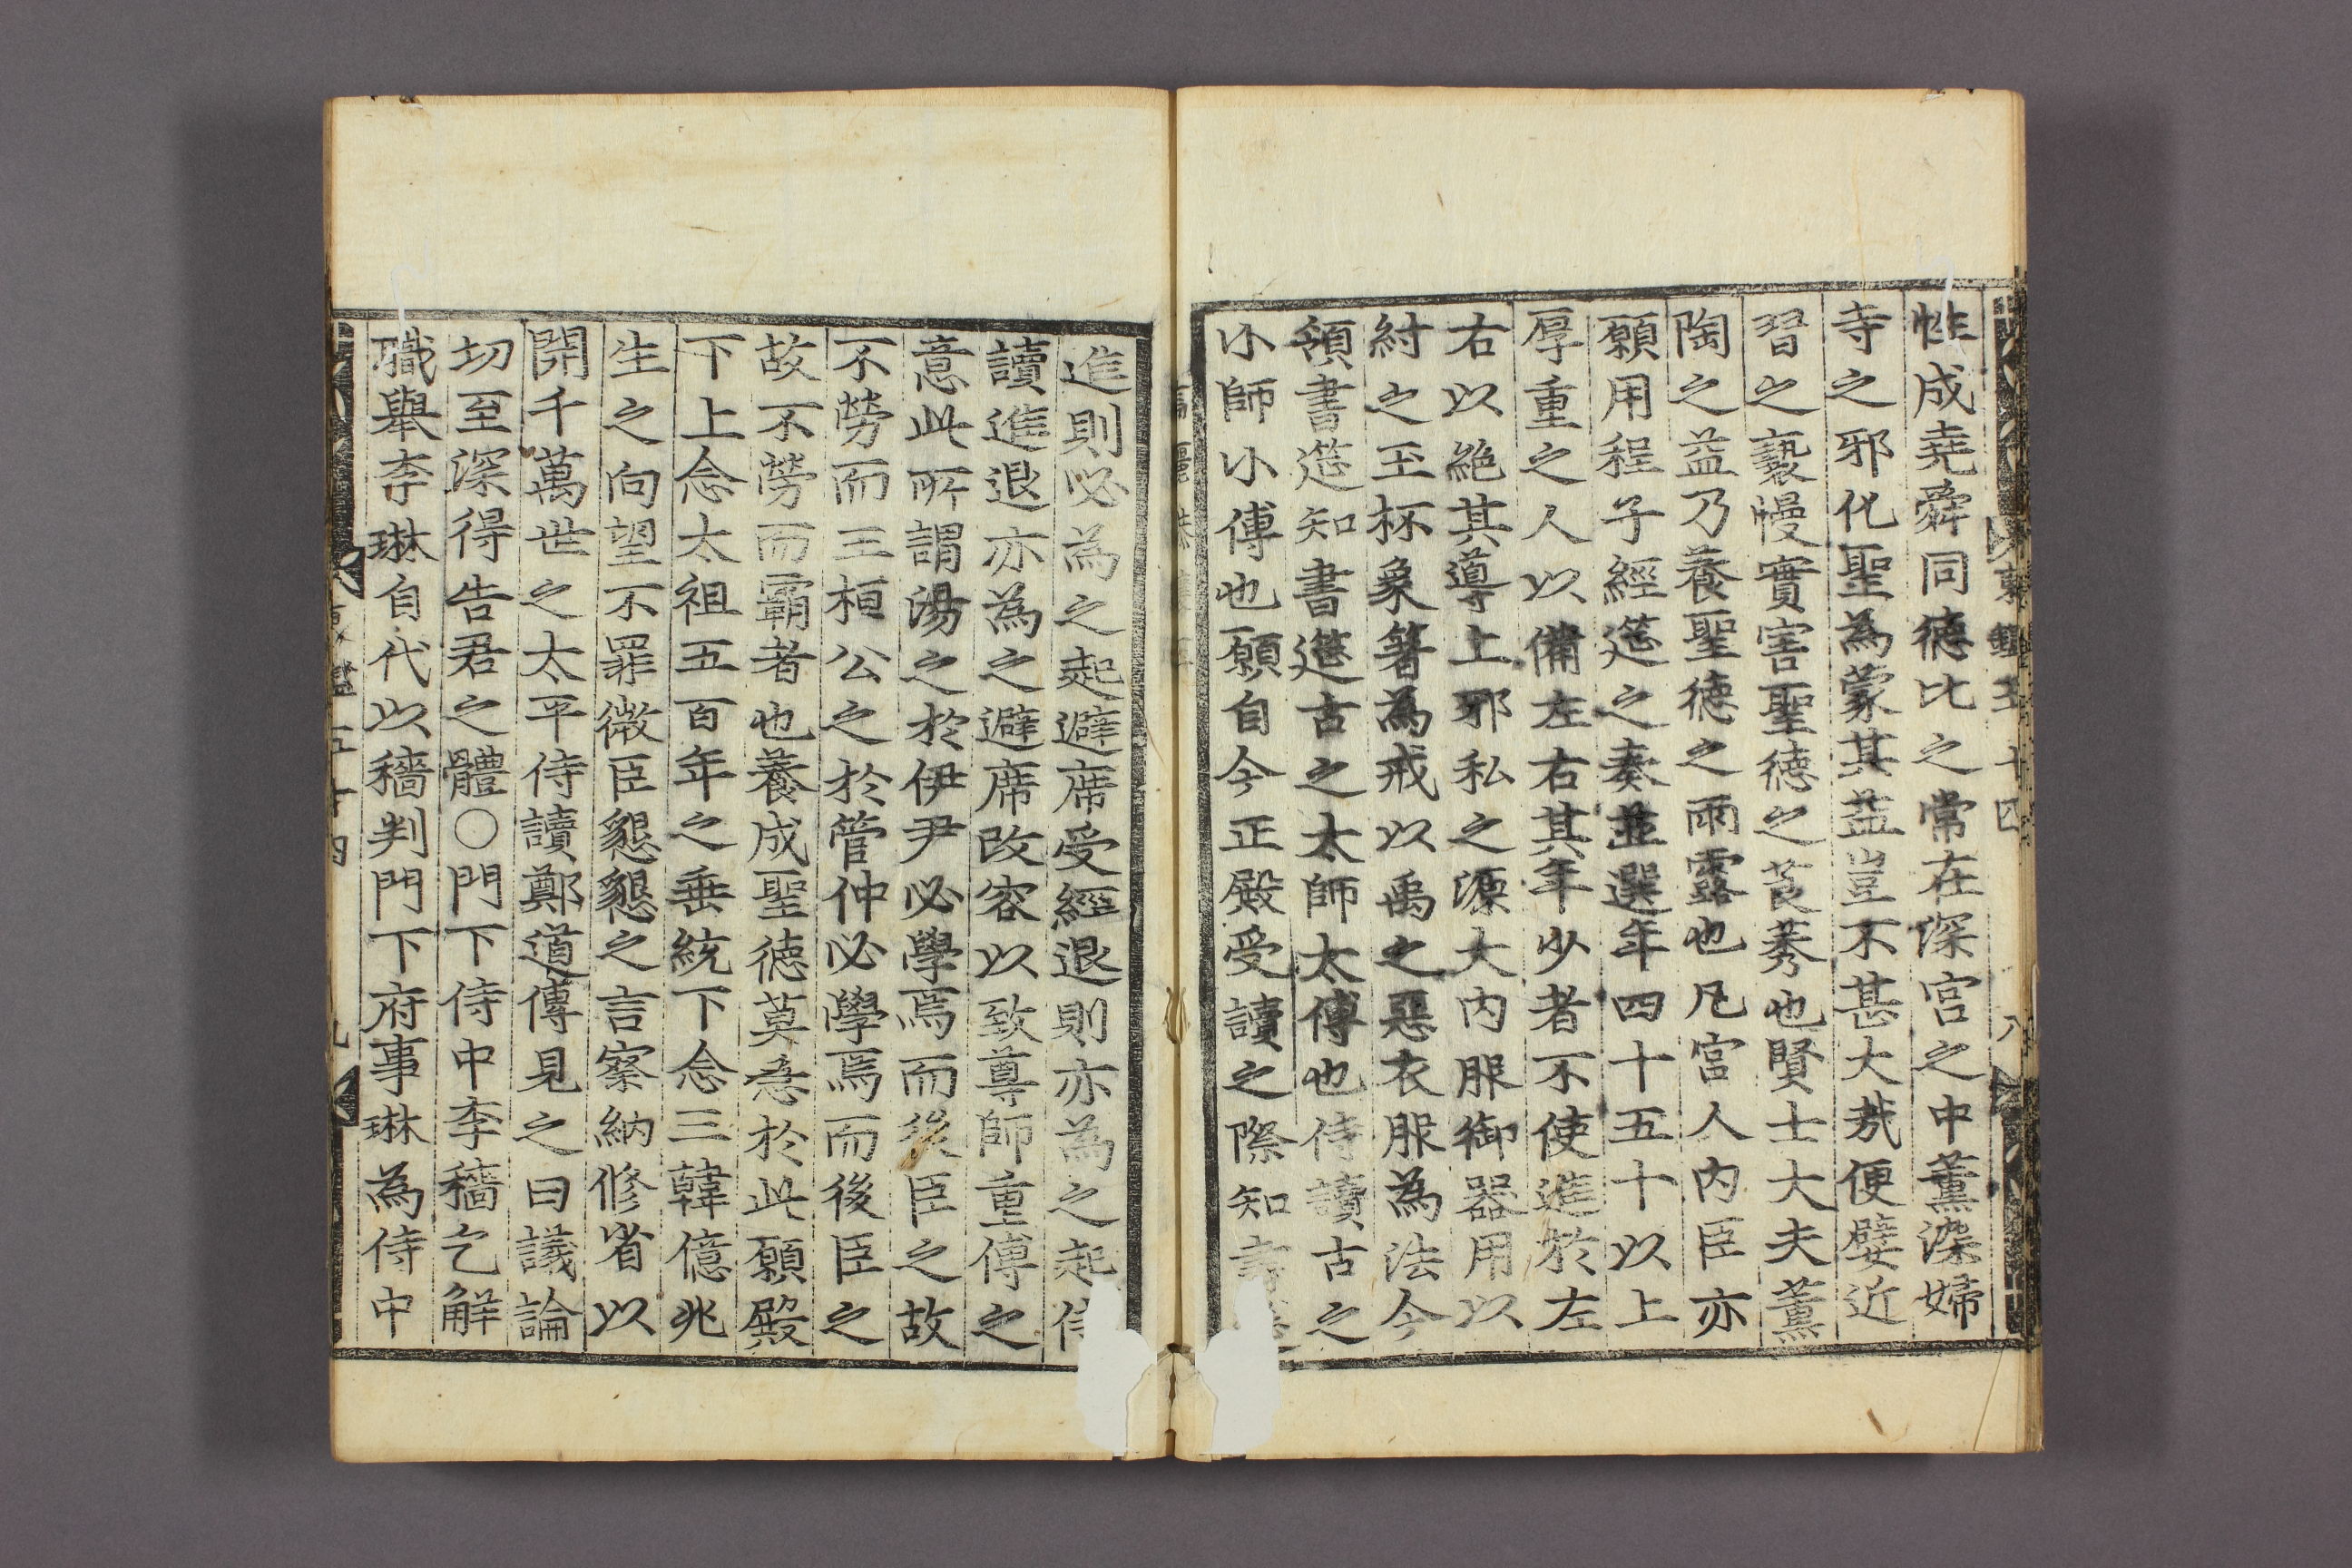 性成堯舜同德比之常在深宮之中薰染婦
寺之邪化聖為蒙其益豈不甚大哉便嬖近
習之褻慢實害聖德之莨莠也賢士大夫薰
陶之益乃養聖德之雨露也凡宮人內臣亦
願用程子經筵之奏並選年四十五十以上
厚重之人以備左右其年少者不使進於左
右以絶其導上邪私之源大內服御器用以
紂之玉杯象箸為戒以禹之惡衣服為法今
領書筵知書筵古之太師太傅也侍讀古之
小師小傅也願自今正殿受讀之際知書筵
進則必為之起避席受經退則亦為之起侍
讀進退亦為之避席改容以致尊師重傅之
意此所謂湯之於伊尹必學焉而後臣之故
不勞而三桓公之於管仲必學焉而後臣之
故不勞而霸者也養成聖德莫急於此願殿
下上念太祖五百年之垂統下念三韓億兆
生之向望不罪微臣懇懇之言察納修省以
開千萬世之太平侍讀鄭道傳見之曰議論
切至深得告君之體○門下侍中李穡乞解
職舉李琳自代以穡判門下府事琳為侍中
東鑑五十四
八